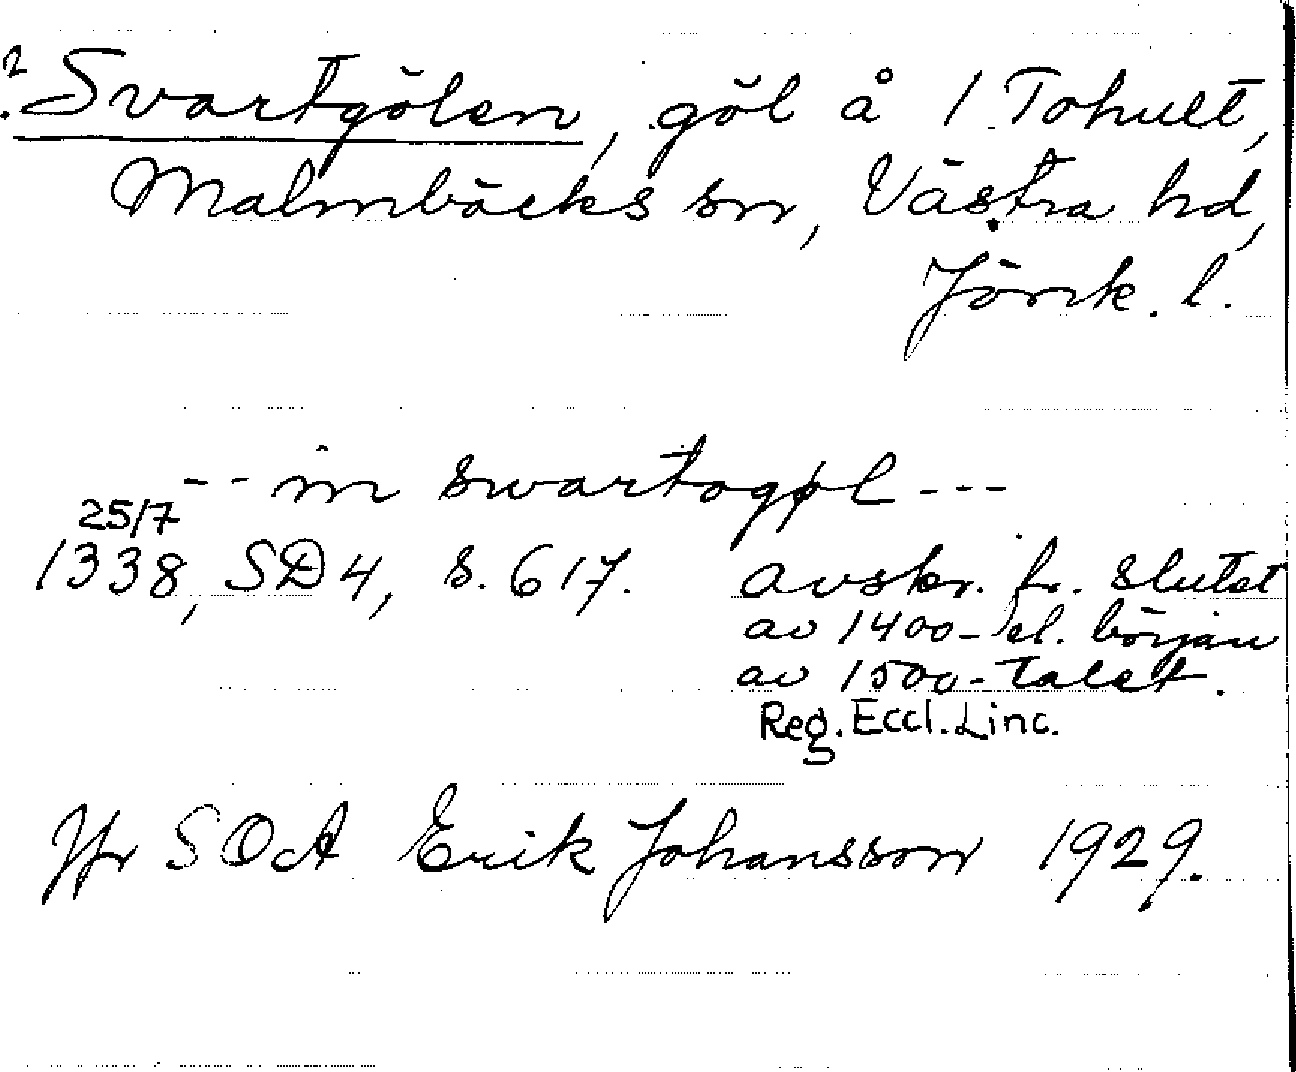 ? Svartgölen, göl å 1 Tohult,
Malmbäcks sn, Västra hd,
Jönk. l.
-- in swartogøl ---
25/7
1338, SD 4, s. 617. avskr. fr. slutet
av 1400- el. början
av 1500-talet.
Reg. Eccl. Linc.
Jfr SOA Erik Johansson 1929.